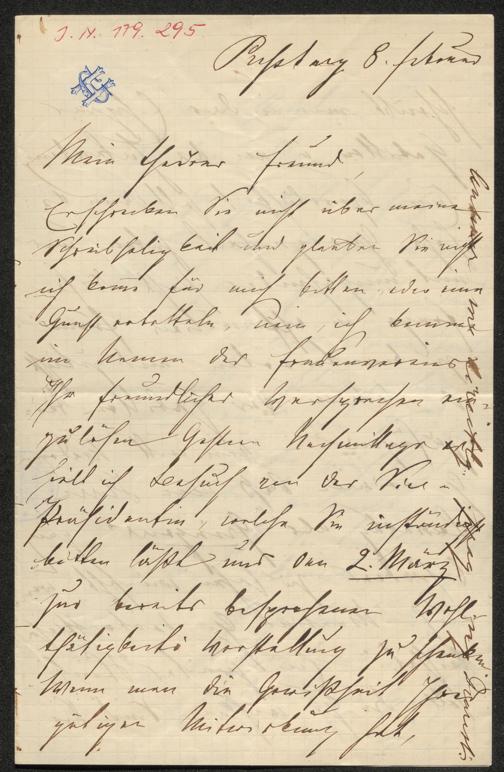 J. N. 179.295
Pressburg 8. Februar
Mein theurer Freund,
Erschrecken Sie nicht über meine
Schreibseligkeit und glauben Sie nicht
ich komme für mich bitten oder eine
Gunst erbetteln, nein, ich komme
im Namen des Frauenvereins
Ihr freundliches Versprechen ein-
zulösen. Gestern Nachmittags er-
hielt ich Besuch von der Vice-
Präsidentin, welche Sie inständigst
bitten läßt uns den 2. März
zur bereits besprochenen Wohl-
thätigkeits Vorstellung zu schenken.
Wenn man die Gewißheit Ihrer
gütigen Mitwirkung hat,